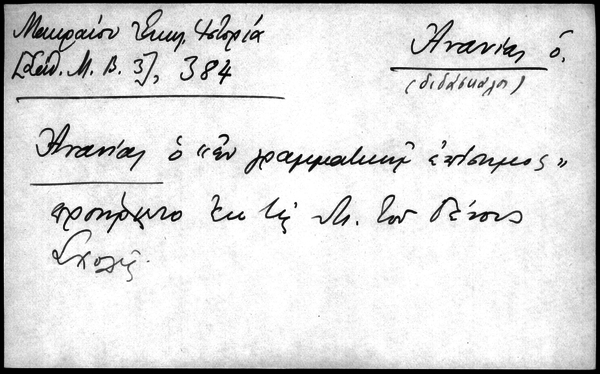 Μακραίου Ἐκκλ. Ἱστορία
[Σάθ. Μ. Β. 3], 384
Ἀνανίας ὁ.
(διδάσκαλος)
Ἀνανίας ὁ «ἐν γραμματικῇ ἐπίσημος»
προήρχετο ἐκ τῆς Μ. τοῦ Γένους
Σχολῆς.